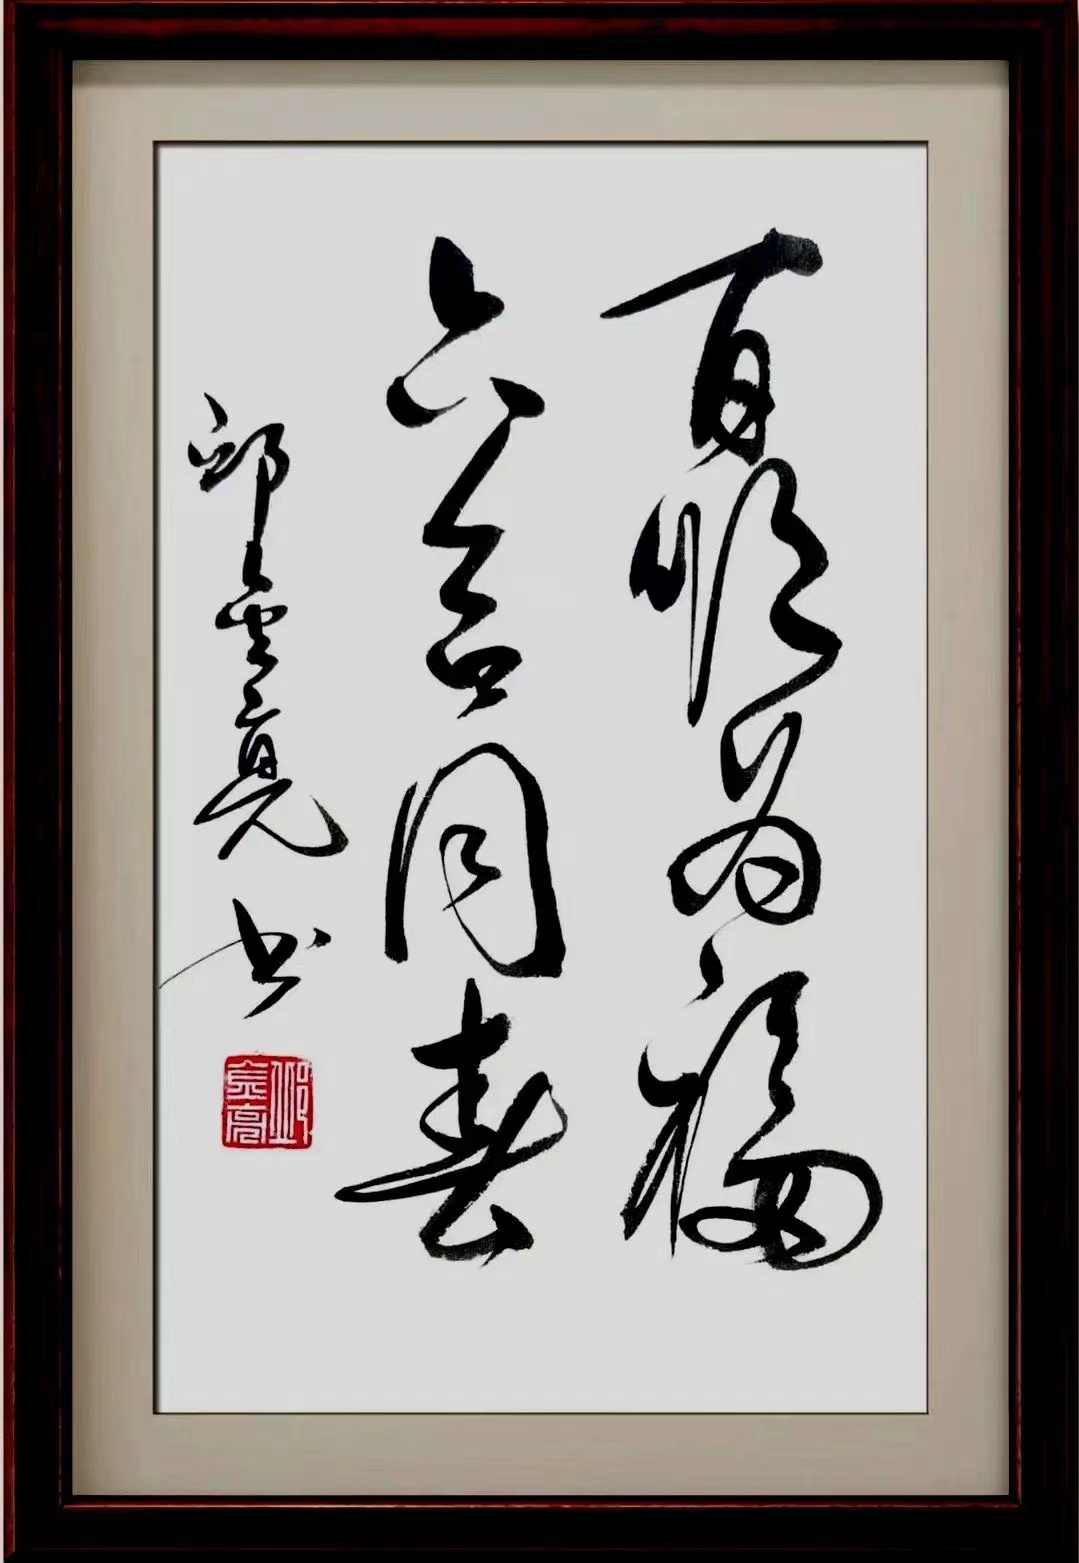 百顺为福
六合同春
邱云亮书